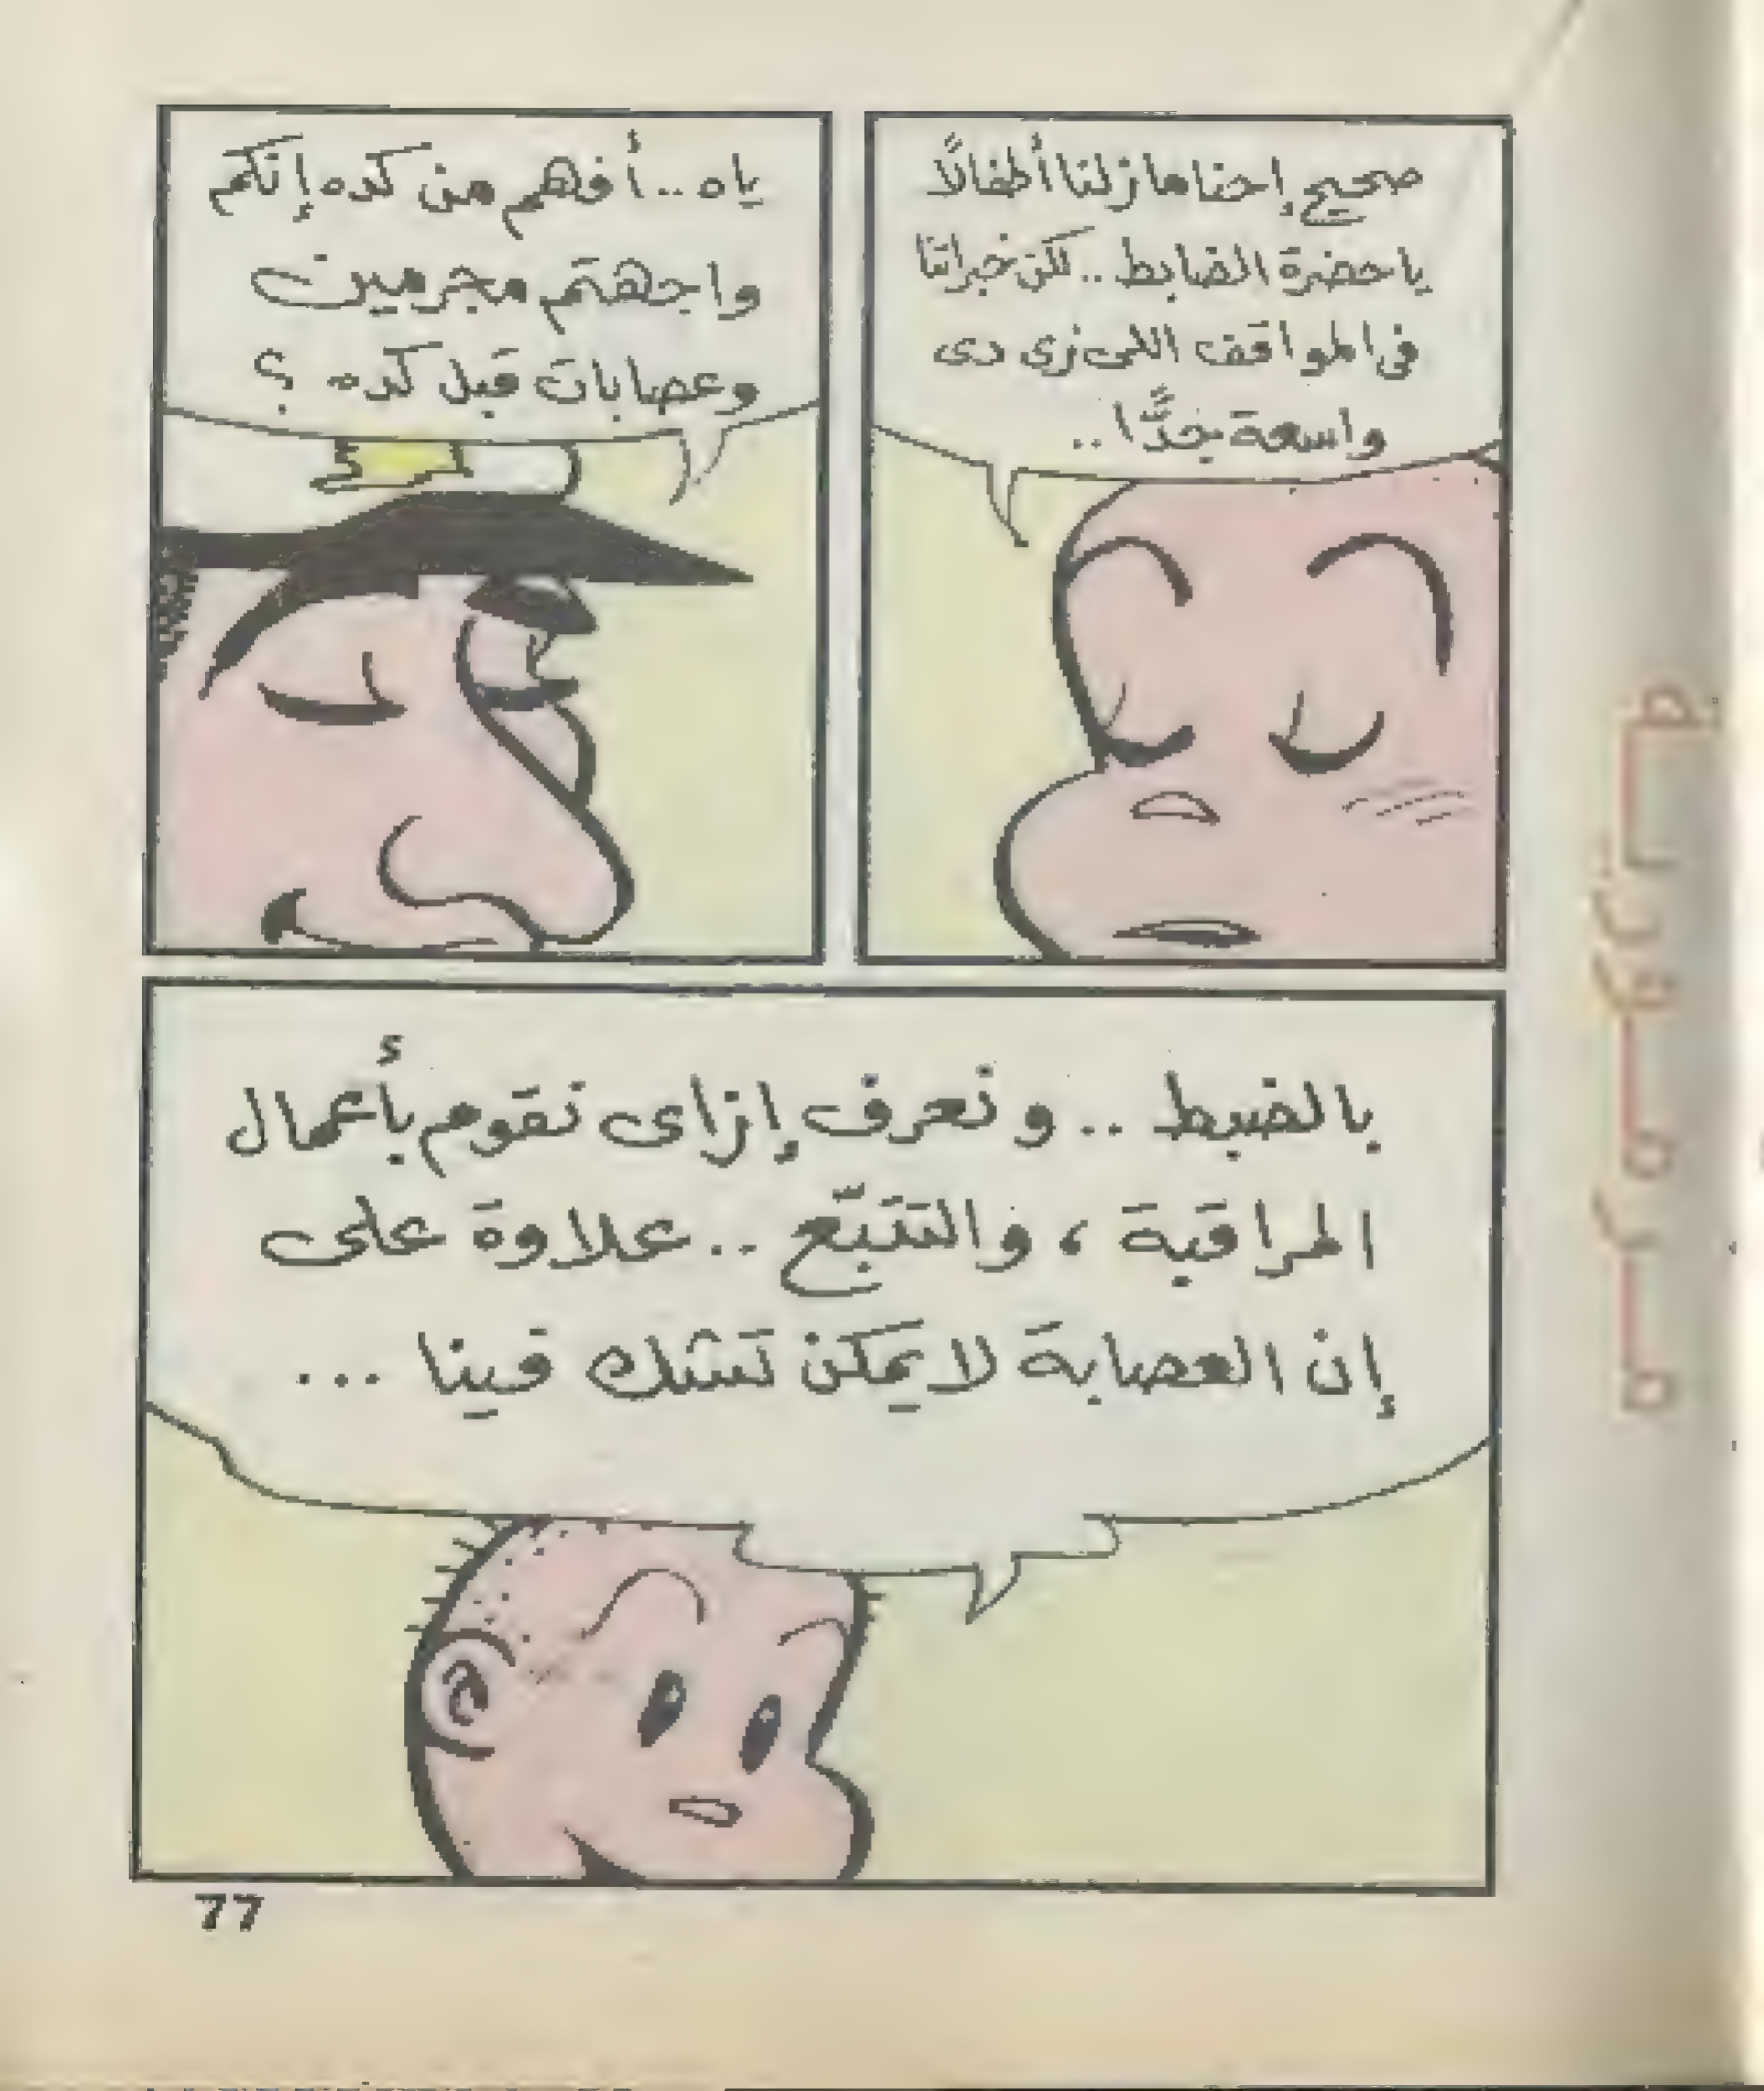 صحيح إحنا مازلنا أطفالًا
يا حضرة الضابط .. لكن خبراتنا
فى المواقف اللى زى دى
واسعة جدًّا ..
ياه .. أفهم من كده إنكم
واجهتم مجرمين
وعصابات قبل كده ؟
بالضبط .. ونعرف إزاى نقوم بأعمال
المراقبة ، والتتبّع .. علاوة على
إن العصابة لا يمكن تشك فينا ...
77